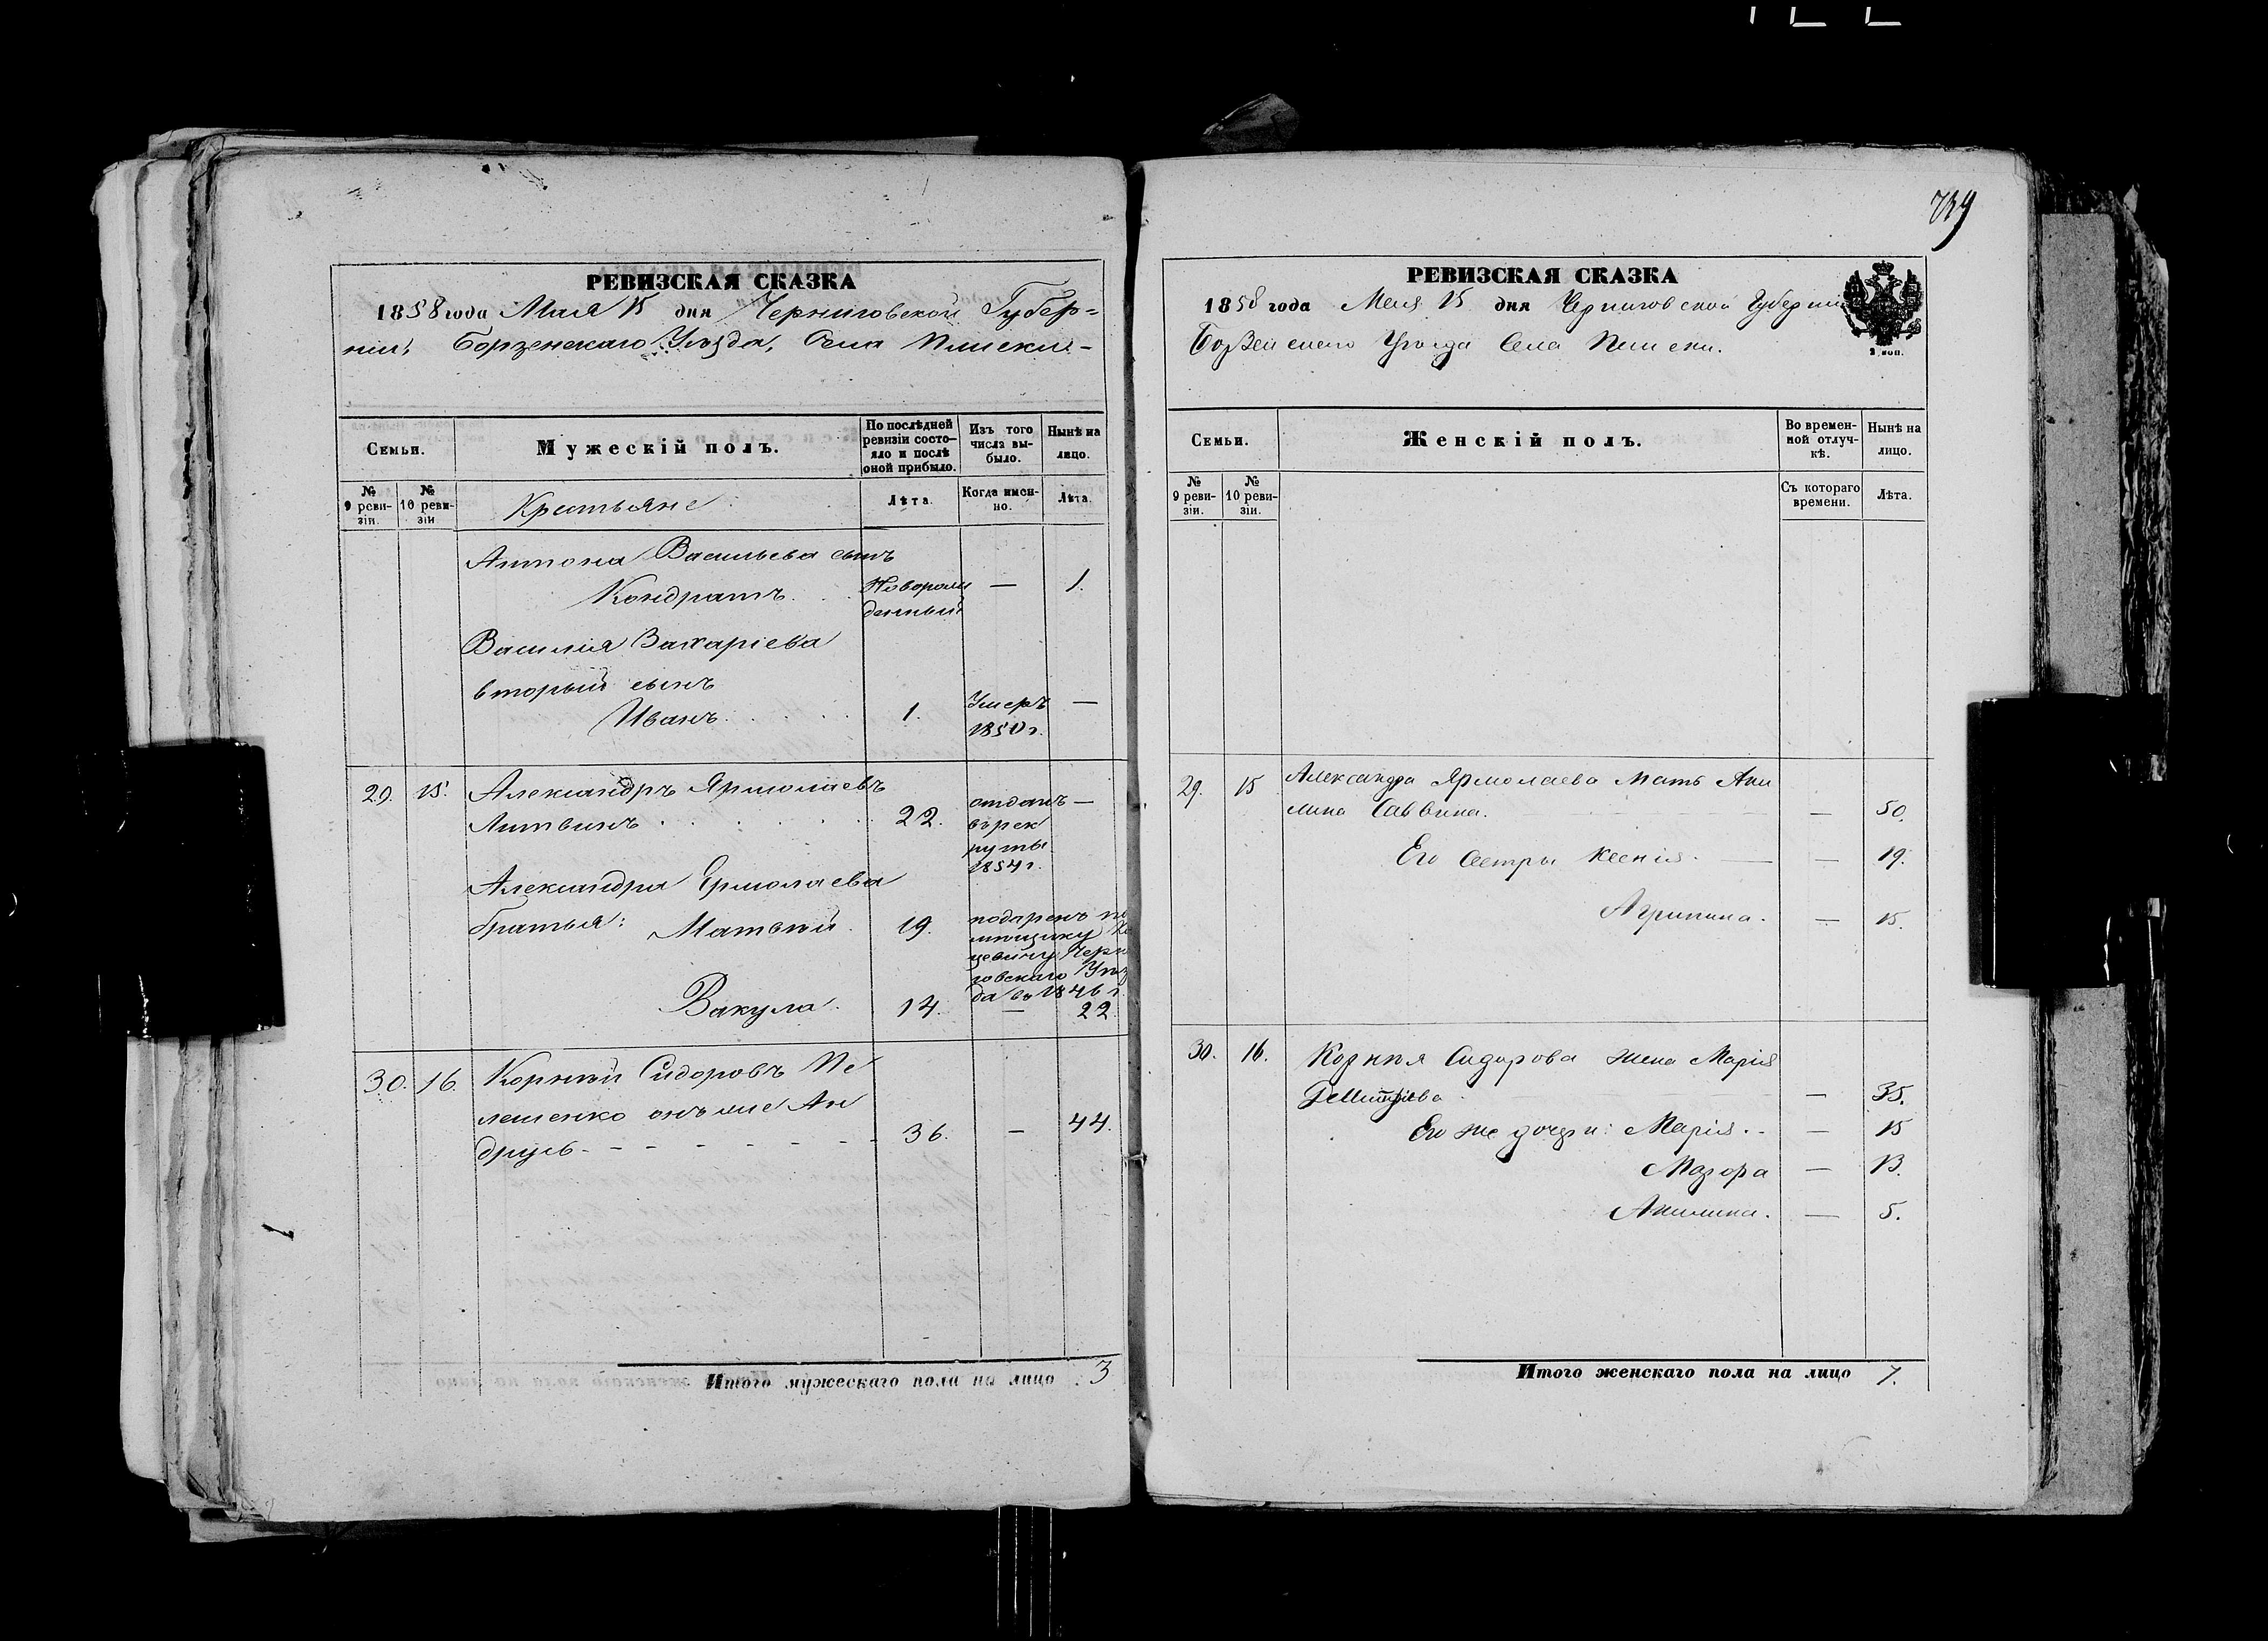 739
РЕВИЗСКАЯ СКАЗКА
1858 года Мая 15 дня Черниговской Губер=
ніи, Борзенскаго Уѣзда, Села Плиски.-
Семьи.
Мужескій полъ.
По послѣдней ревизіи состо-
яло и послѣ
оной прибыло.
Изъ того
числа вы-
было.
Нынѣ на
лицо.
№ 9 реви-
зіи.
№ 10 реви-
зіи
Крестьяне
Лѣта.
Когда имен-
но.
Лѣта.
Антона Васильева сынъ
Кондратъ. Новорож
денный — 1.
Василія Захаріева
вторый сынъ
Иванъ 1. Умеръ —
1850 г.
29. 15. Александръ Ярмолаевъ
Литвинъ 22. отданъ —
въ рек
руты
1854 г.
Александра Ермолаева
братья: Матвѣй. 19. подаренъ по
мѣщику
Черни
говскаго Уѣз
да въ 1846 г.
Вакула. 14. — 22.
30. 16. Корнѣй Сидоровъ Пе
лешенко онъ же Ан
друсь - - - - - - - 36. — 44.
Итого мужескаго пола на лицо 3
РЕВИЗСКАЯ СКАЗКА
1858 года Мая 15 дня Черниговской Губерніи
Борзенскаго Уѣзда Села Плиски.
2 коп.
Семьи.
Женскій полъ.
Во времен-
ной отлуч-
кѣ.
Нынѣ на
лицо.
№ 9 реви-
зіи.
№ 10 реви-
зіи.
Съ котораго
времени.
Лѣта.
29. 15 Александра Ярмолаева Мать Аки
лина Саввина. — 50.
Его Сестры Ксенія. — 19.
Агрипина. — 15.
30. 16. Корнѣя Сидорова жена Марія
Дмитріева — 35.
Его же дочери: Марія. - — 15
Мазора — 13.
Акилина. — 5.
Итого женскаго пола на лицо 7.